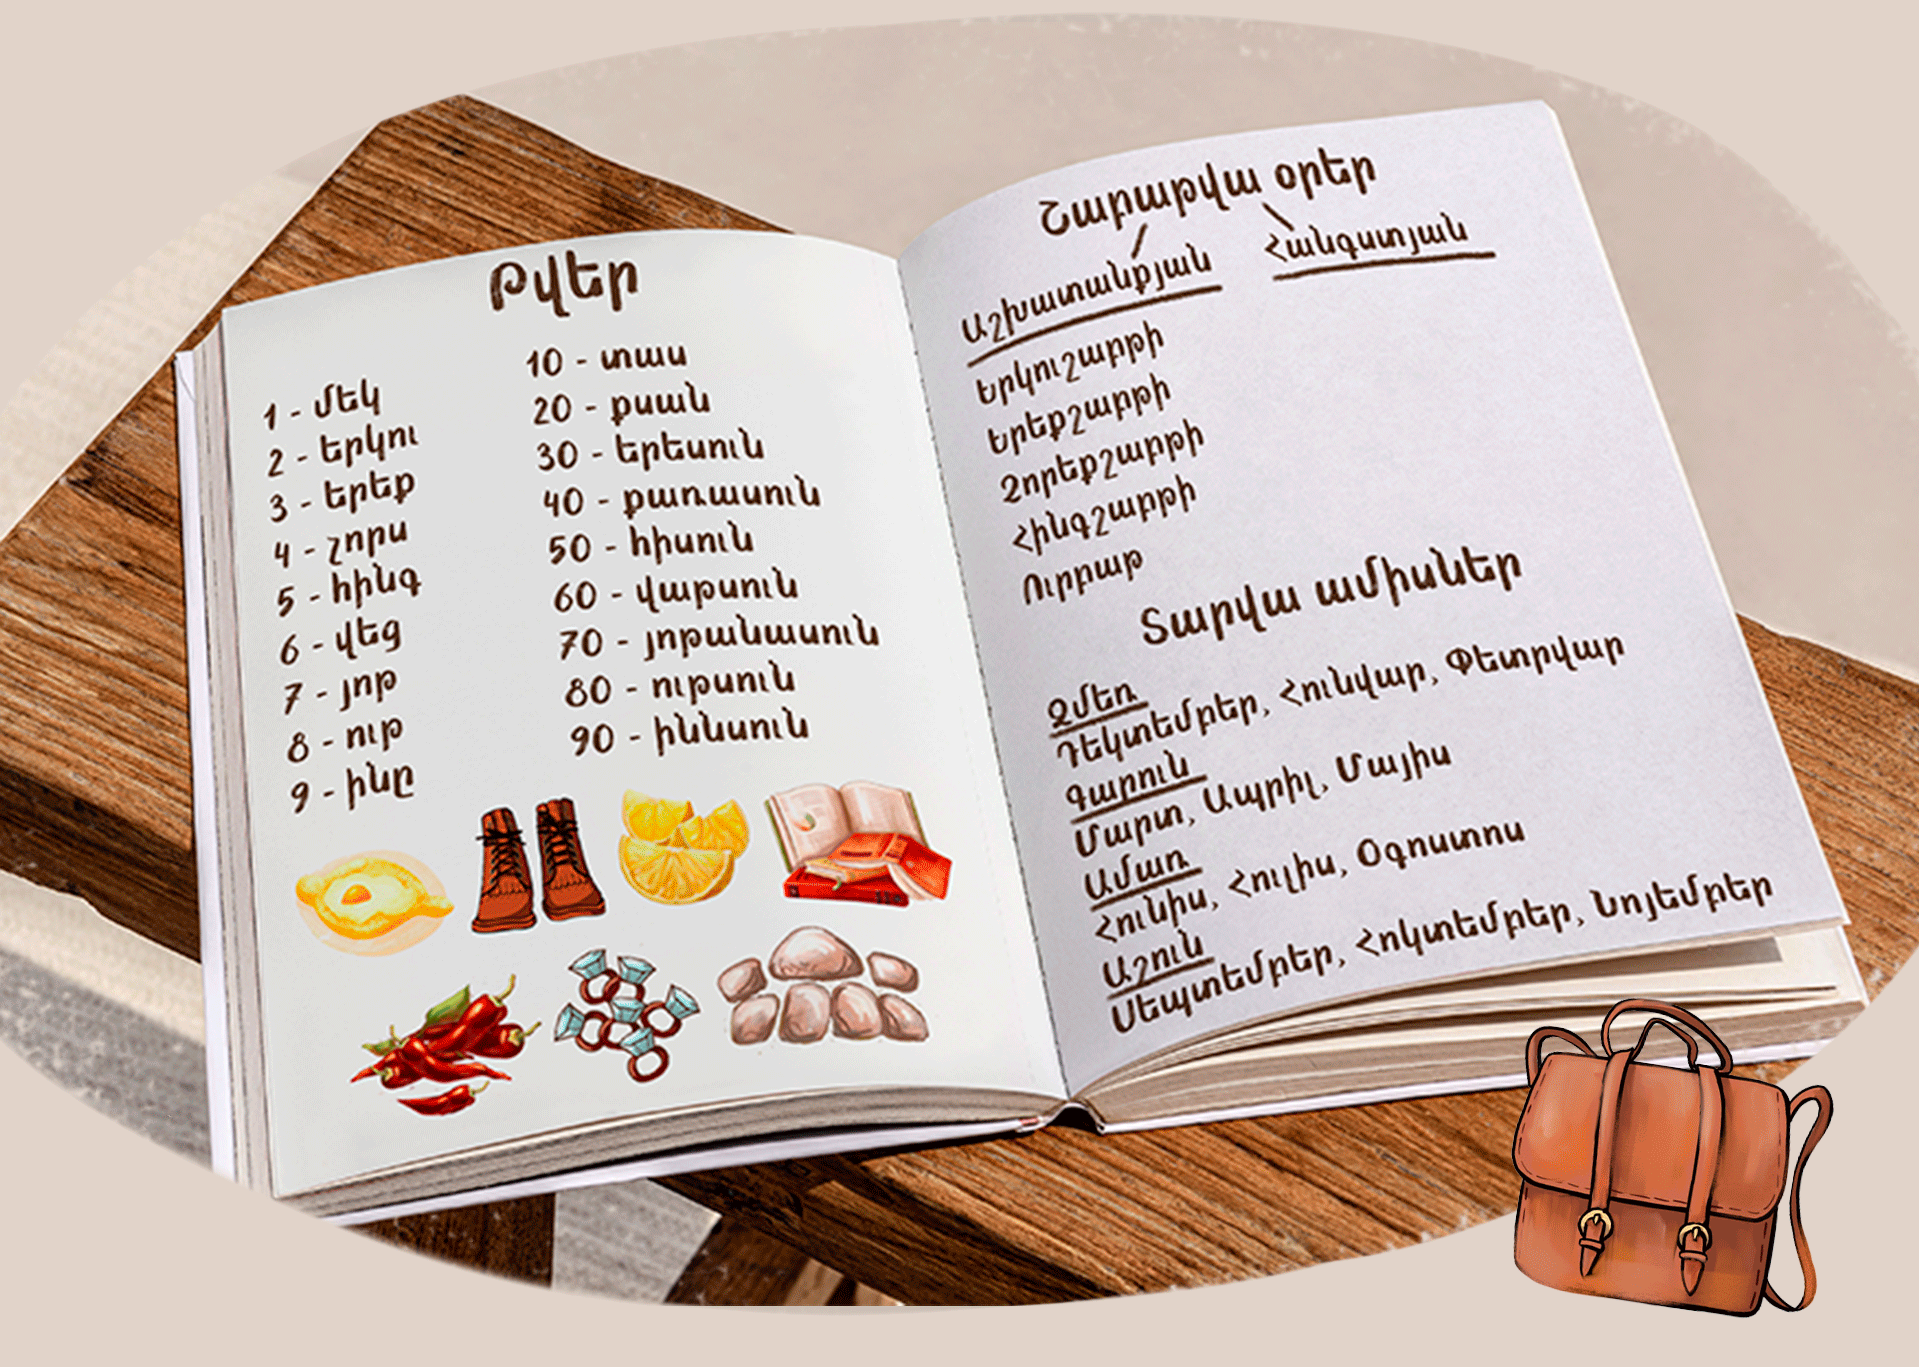 Թվեր
1 - մեկ
2 - երկու
3 - երեք
4 - չորս
5 - հինգ
6 - վեց
7 - յոթ
8 - ութ
9 - ինը
10 - տաս
20 - քսան
30 - երեսուն
40 - քառասուն
50 - հիսուն
60 - վաթսուն
70 - յոթանասուն
80 - ութսուն
90 - իննսուն
Շաբաթվա օրեր
Աշխատանքյան Հանգստյան
Երկուշաբթի
Երեքշաբթի
Չորեքշաբթի
Հինգշաբթի
Ուրբաթ
Տարվա ամիսներ
Ձմեռ
Դեկտեմբեր, Հունվար, Փետրվար
Գարուն
Մարտ, Ապրիլ, Մայիս
Ամառ
Հունիս, Հուլիս, Օգոստոս
Աշուն
Սեպտեմբեր, Հոկտեմբեր, Նոյեմբեր